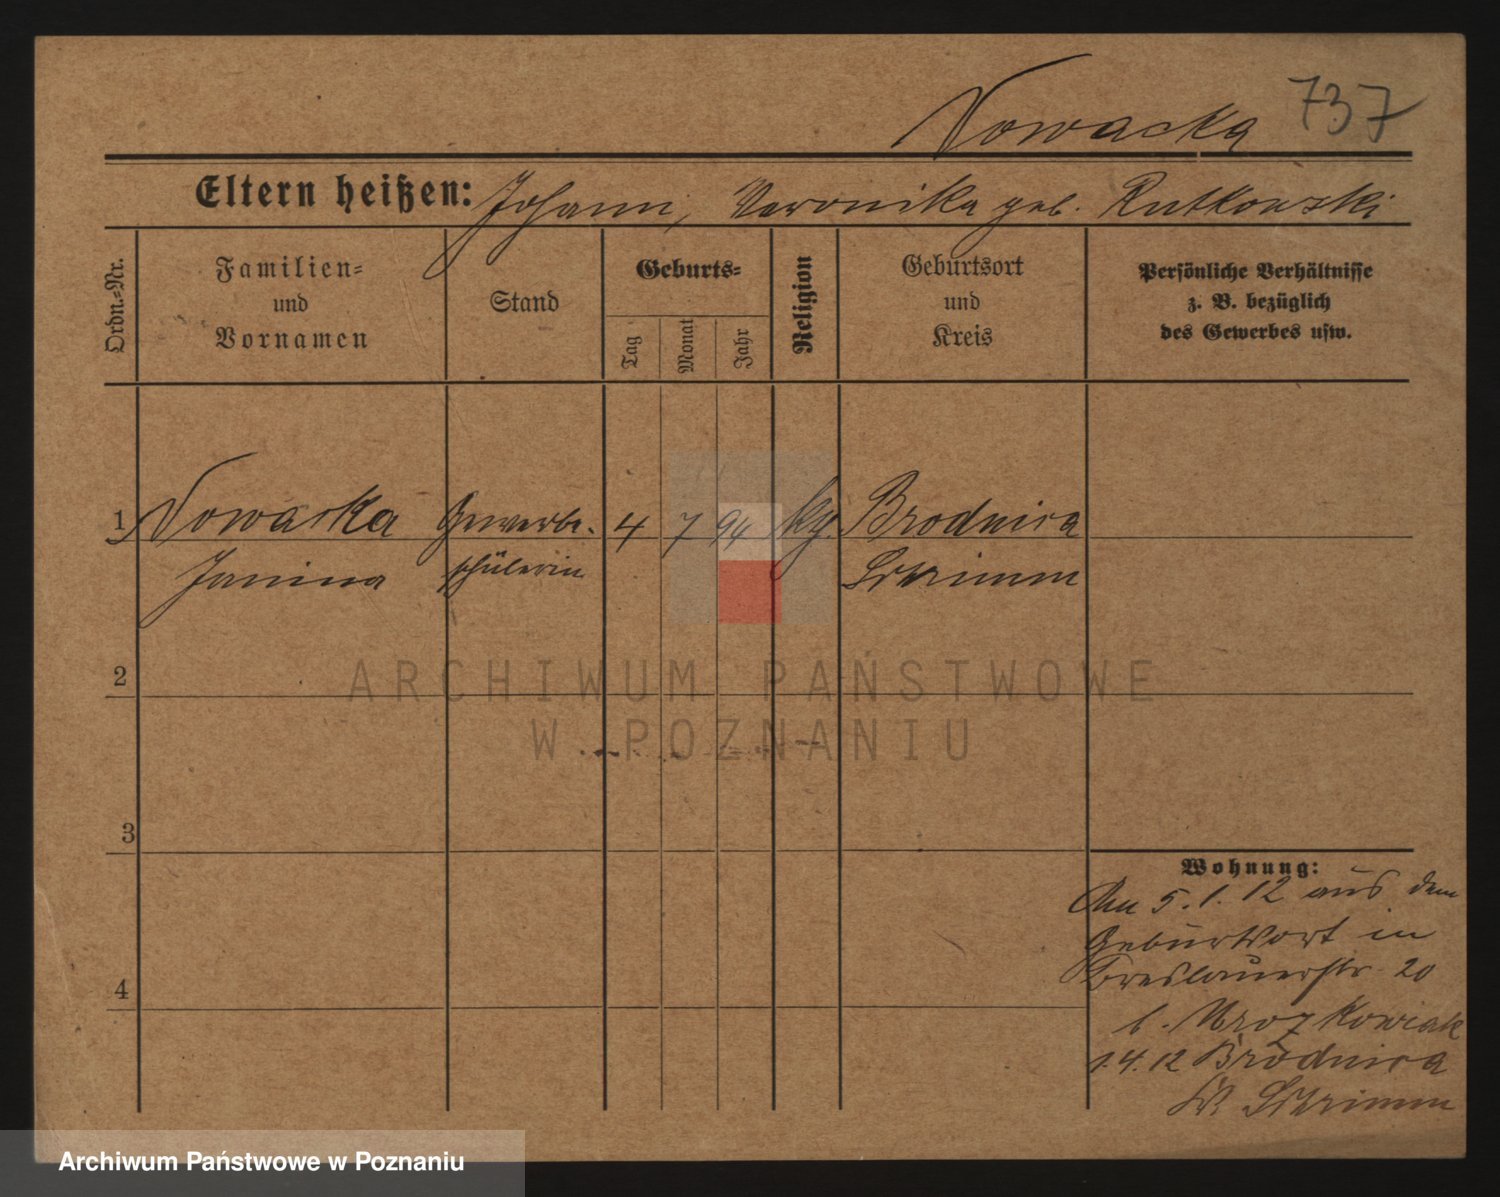 Nowacka 737
Eltern heißen: Johann, Veronika geb. Rutkowski
Ordn.-Nr.
Familien-
und
Vornamen
Stand
Geburts-
Tag
Monat
Jahr
Religion
Geburtsort
und
Kreis
Persönliche Verhältnisse
z. B. bezüglich
des Gewerbes usw.
1 Nowacka Gewerbe- 4 7 94 kg. Brodnica
Janina schülerin Schrimm
2
ARCHIWUM PAŃSTWOWE
W POZNANIU
3
Wohnung:
Am 5.1.12 aus dem
Geburtsort in
Breslauerstr 20
b. Mrozkowiak
1.4.12 Brodnica
Kr. Schrimm
4
Archiwum Państwowe w Poznaniu